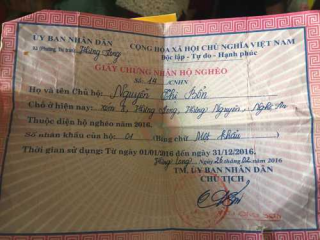 ỦY BAN NHÂN DÂN
CỘNG HÒA XÃ HỘI CHỦ NGHĨA VIỆT NAM
Hưng Long
Độc lập - Tự do - Hạnh phúc
GIẤY CHỨNG NHẬN HỘ NGHÈO
Số 16 /CNHN
Họ và tên Chủ hộ: Nguyễn Thị Bốn
Chỗ ở hiện nay: Xóm 2, Hưng Long, Hưng Nguyên, Nghệ An
Thuộc diện hộ nghèo năm 2016.
Số nhân khẩu của hộ: 01 (Bằng chữ Một khẩu)
Thời gian sử dụng: Từ ngày 01/01/2016 đến ngày 31/12/2016.
Hưng Long, ngày 26 tháng 02 năm 2016
TM. ỦY BAN NHÂN DÂN
CHỦ TỊCH